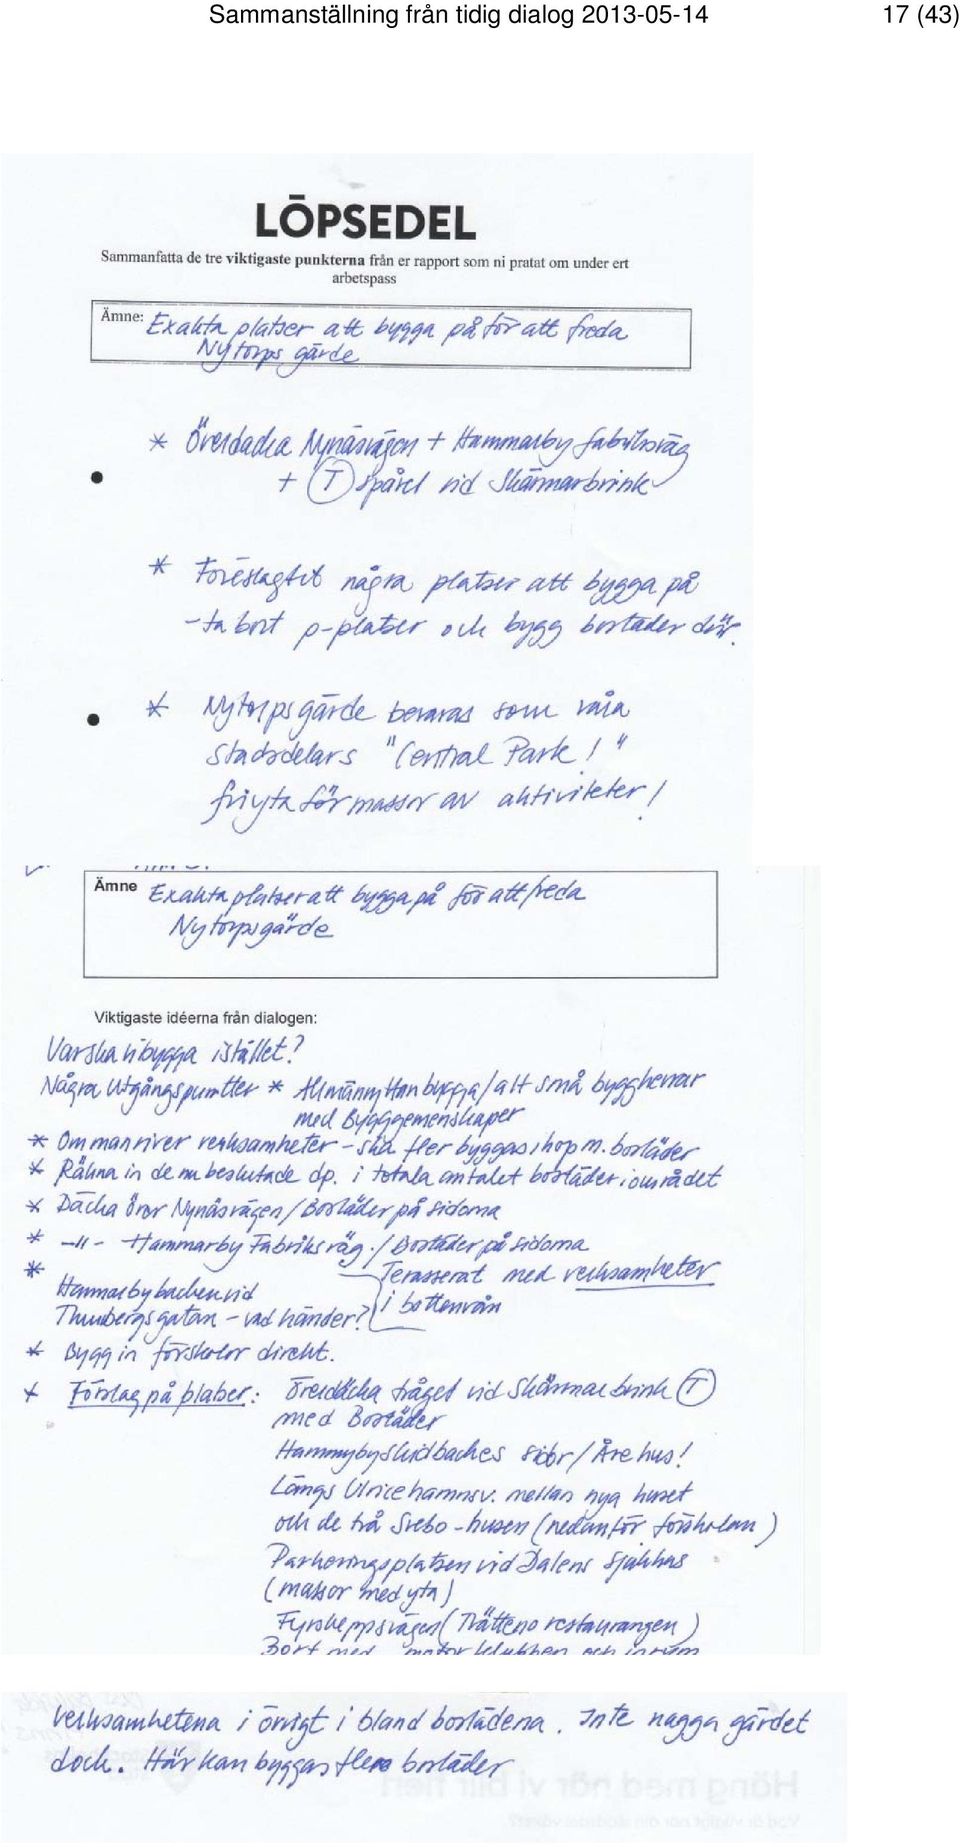 Sammanställning från tidig dialog 2013-05-14 17 (43)
LÖPSEDEL
Sammanfatta de tre viktigaste punkterna från er rapport som ni pratat om under ert
arbetspass
Ämne: Exakta platser att bygga på för att freda
Nytorps gärde
* Överdäcka Nynäsvägen + Hammarby fabriksväg
+ (T) spåret vid Skärmarbrink
* Föreslagit några platser att bygga på
- ta bort p-platser och bygg bostäder där.
* Nytorps gärde bevaras som våra
stadsdelars "Central Park!"
friyta för massor av aktiviteter!
Ämne Exakta platser att bygga på för att freda
Nytorps gärde
Viktigaste idéerna från dialogen:
Var ska vi bygga istället?
Några utgångspunkter * Allmännyttan bygga/alt små byggherrar
med Byggemenskaper
* Om man river verksamheter - ska fler byggas ihop m. bostäder
* Räkna in de nu beslutade dp. i totala antalet bostäder i området
* Däcka över Nynäsvägen / Bostäder på sidorna
* -"- Hammarby Fabriksväg. / Bostäder på sidorna
Terasserat med verksamheter
i bottenvån
* Hammarbybacken vid
Thunbergsgatan - vad händer?
* Bygg in förskolor direkt.
* Förslag på platser: Överdäcka tråget vid Skärmarbrink (T)
med Bostäder
Hammybyskidbackes sidor / Åre hus!
Längs Ulricehamnsv. mellan nya huset
och de två Svebo-husen (nedanför förskolan)
Parkeringsplatsen vid Dalens sjukhus
(massor med yta)
Fyrskeppsvägen (Trätteno restaurangen)
Bort med motorklubben och inrym
verksamheterna i övrigt i bland bostäderna. Inte nagga gärdet
dock. Här kan byggas flera bostäder